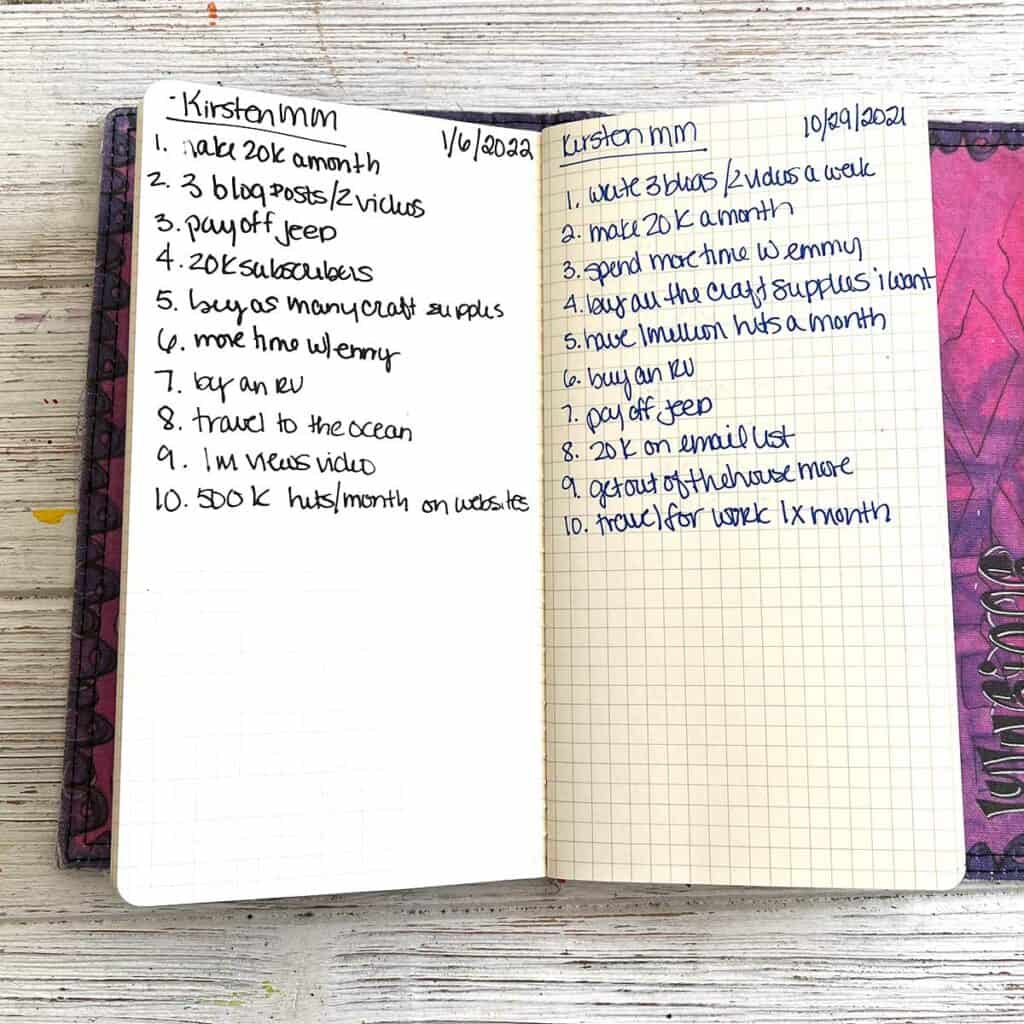 Kirsten MM
1/6/2022
1. make 20k a month
2. 3 blog posts/2 videos
3. pay off jeep
4. 20K subscribers
5. buy as many craft supplies
6. more time w/emmy
7. by an RV
8. travel to the ocean
9. 1m views video
10. 500K hits/month on websites
Kirsten MM
10/29/2021
1. write 3 blogs /2 videos a week
2. make 20K a month
3. spend more time w emmy
4. buy all the craft supplies i want
5. have 1 million hits a month
6. buy an RV
7. pay off jeep
8. 20K on email list
9. get out of the house more
10. travel for work 1x month